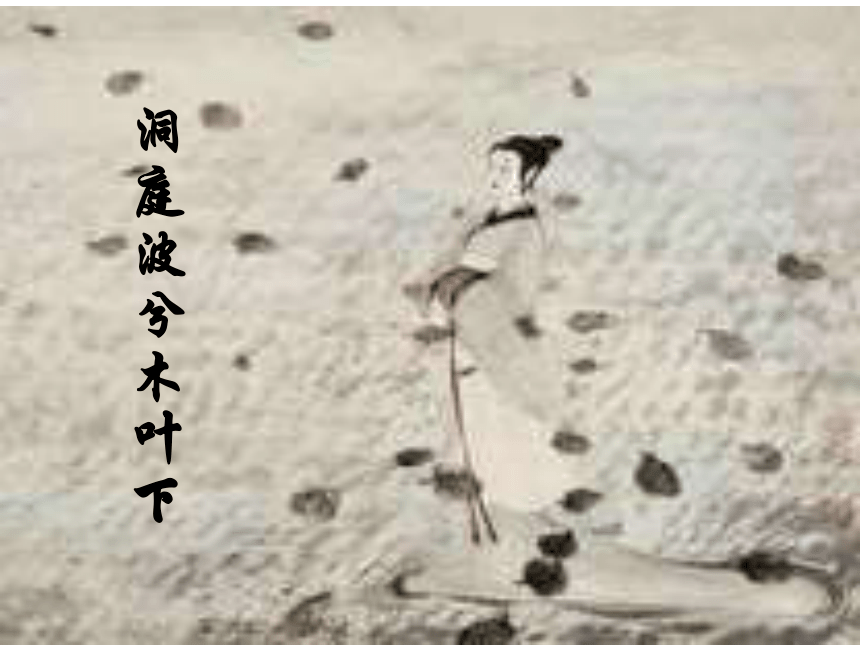 洞庭波兮木叶下